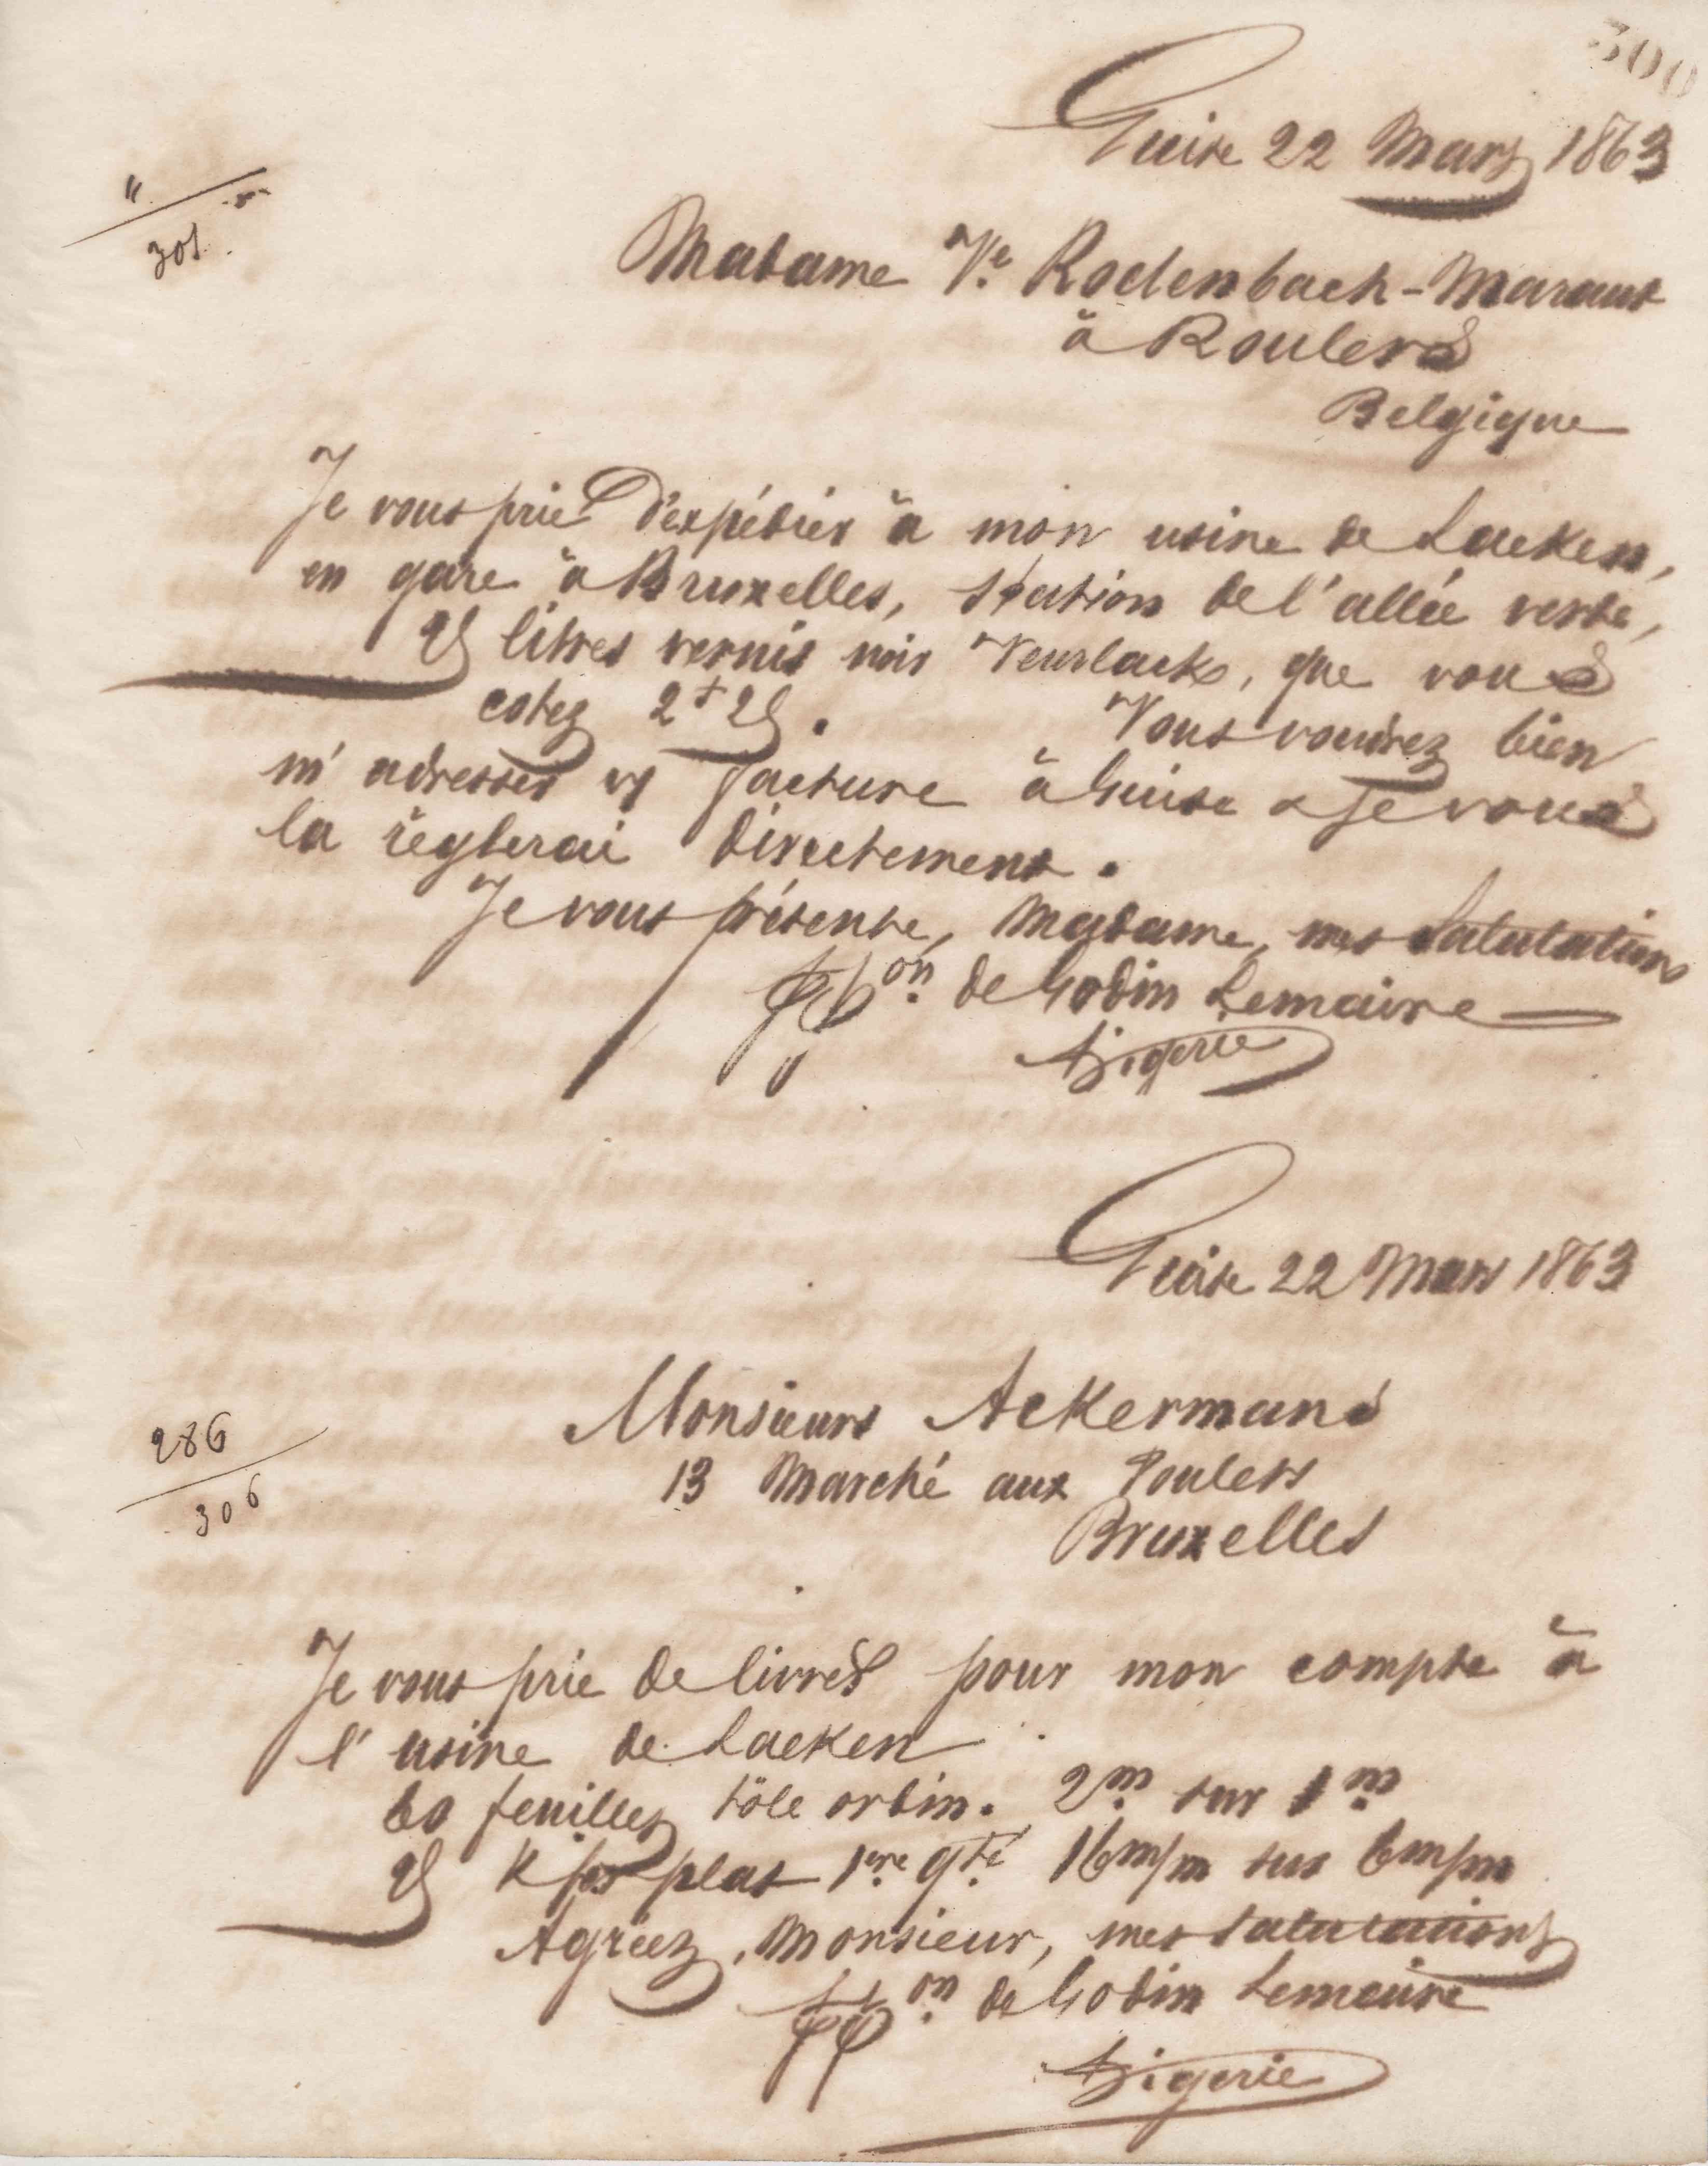 300
Guise 22 Mars 1863
"
301
Madame Ve Rodenbach-Maraut
à Roulers
Belgique
Je vous prie d'expédier à mon usine de Laeken,
en gare à Bruxelles, station de l'allée verte,
25 litres vernis noir Veurlack, que vous
cotez 2f25. Vous voudrez bien
m'adresser vs facture à Guise & je vous
la règlerai directement.
Je vous présente, Madame, mes salutations
ppon de Godin Lemaire
Bigerie
Guise 22 Mars 1863
286
306
Monsieurs Ackermans
13 Marché aux Poulets
Bruxelles
Je vous prie de livrer pour mon compte à
l'usine de Laeken
60 feuilles tôle ordin. 2m sur 1m
25 K fer plat 1ere qté 16m/m sur 6m/m
Agréez, Monsieur, mes salutations
ppon de Godin Lemaire
Bigerie